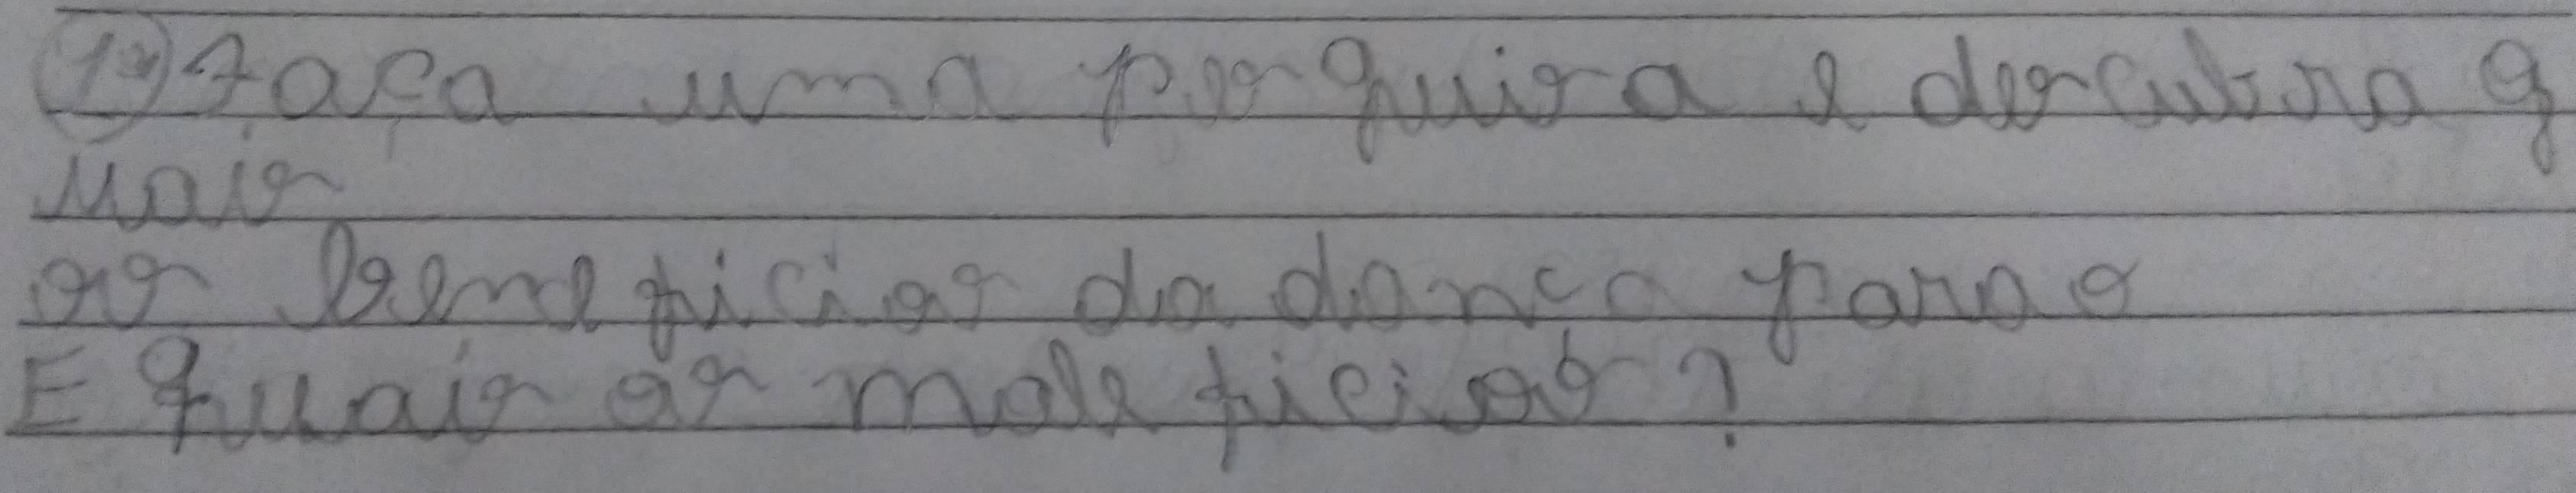 1º) Faça uma pesquisa e descubra q
uais
os beneficios da dança para o
E quais os maleficios?